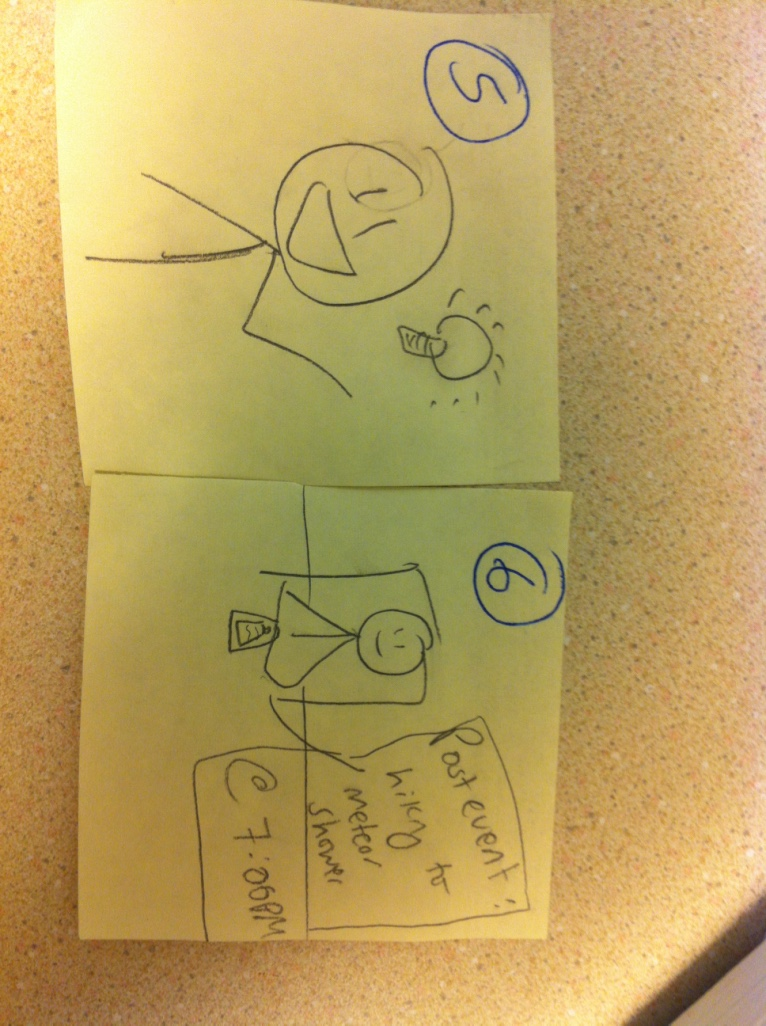 5
6
Post event:
hiking to
meteor
shower
@ 7:00PM